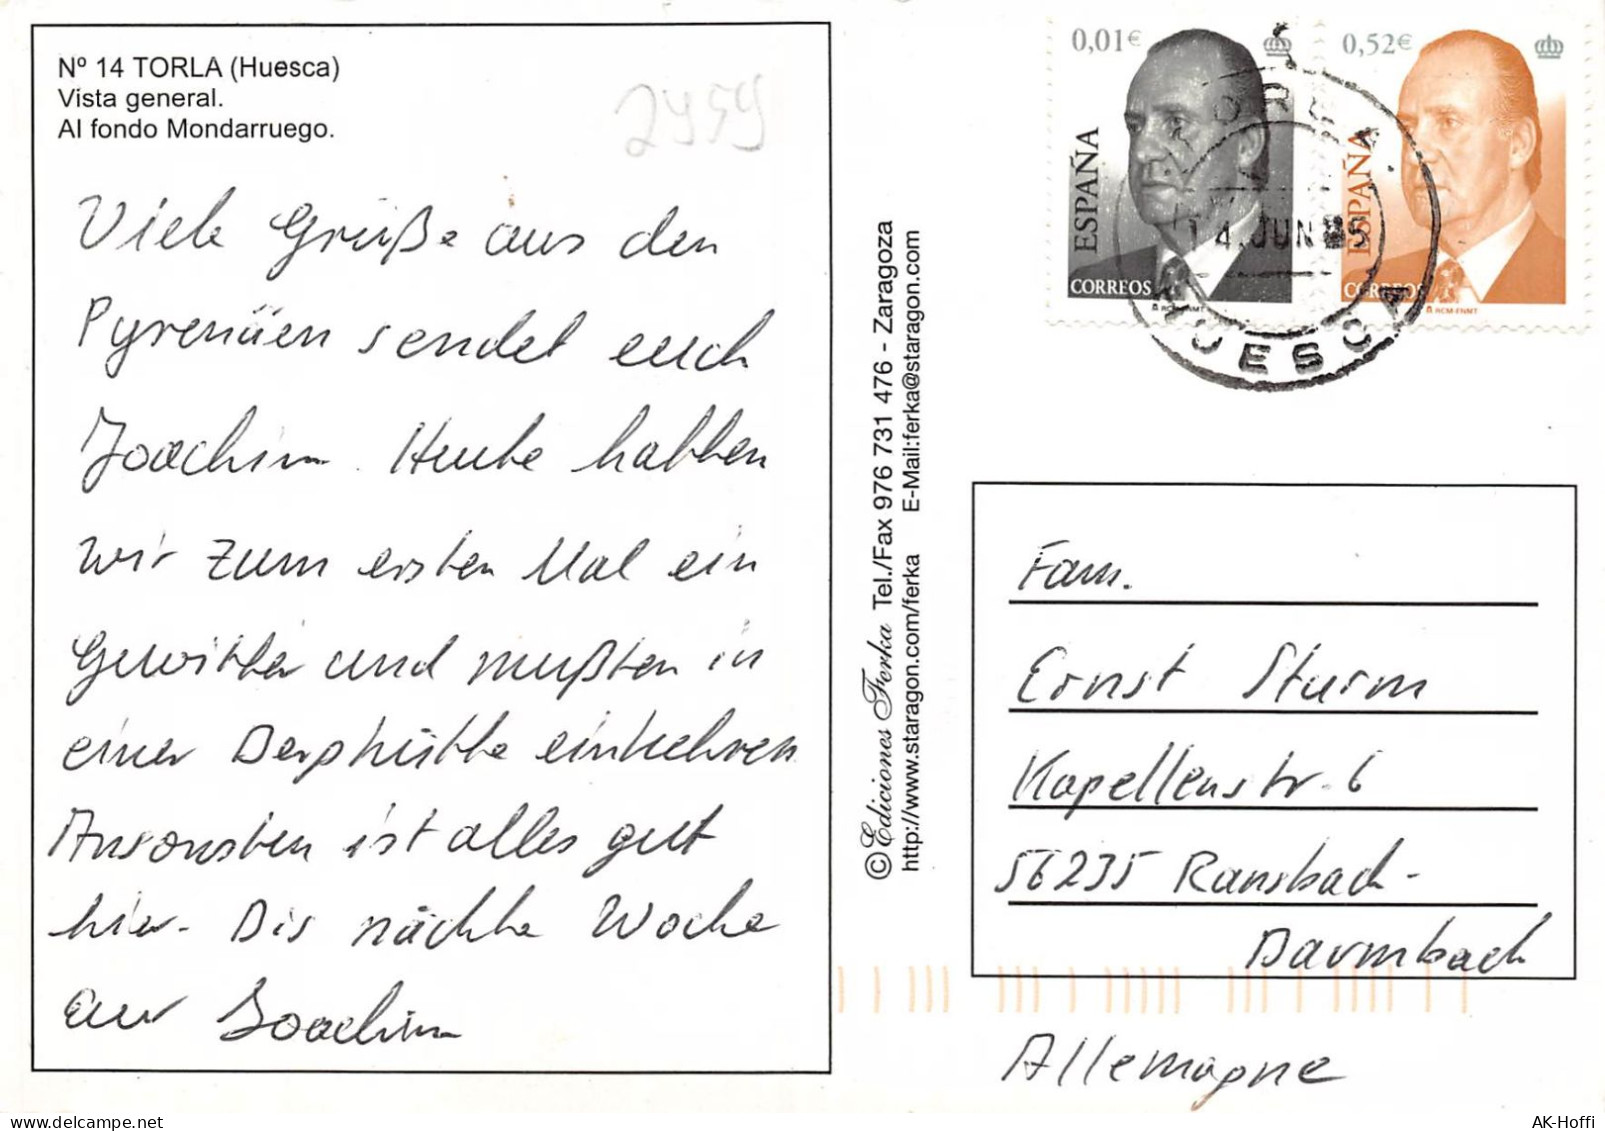 Nº 14 TORLA (Huesca)
Vista general.
Al fondo Mondarruego.
2459
Viele Grüße aus den
Pyrenäen sendet euch
Joachim. Heute habben
wir zum ersten Mal ein
Gewitter und mußten in
einer Berghütte einkehren
Ansonsten ist alles gut
hier. Bis nächte Woche
eur Joachim
©Ediciones Ferka Tel./Fax 976 731 476 - Zaragoza
http://www.staragon.com/ferka E-Mail:ferka@staragon.com
0,01€
ESPAÑA
CORREOS
0,52€
ESPAÑA
CORREOS
RCM-FNMT
14 JUN
HUESCA
Fam.
Ernst Sturm
Kapellenstr. 6
56235 Ransbach-
Baumbach
Allemagne
AK-Hoffi